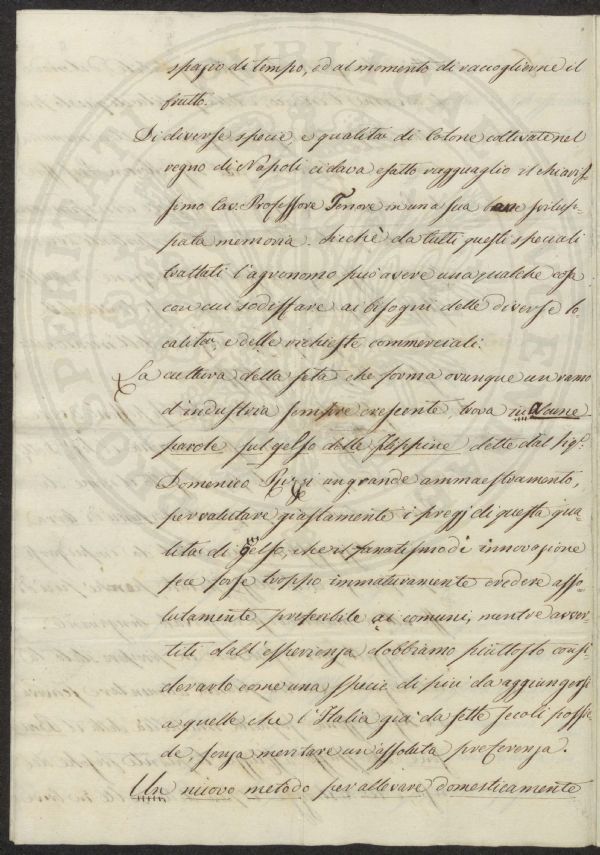 spazio di tempo, ed al momento di raccoglierne il
frutto.
Di diverse specie, e qualità di Cotone coltivate nel
regno di Napoli ci dava esatto ragguaglio il chiaris-
simo Cav. Professore Tenore in una sua ben svilup-
pata memoria. sicchè da tutti questi speciali
trattati l'agronomo può avere una qualche
con cui sodisfare ai bisogni delle diverse lo-
calità, e delle richieste commerciali.
La cultura della seta che forma ovunque un ramo
d'industria sempre crescente, trova in alcune
parole sul gelso delle Filippine dette dal Sigr.
Domenico Rizzi un grande ammaestramento,
per valutare giustamente i pregj di questa qua-
lità di gelso, che il fanatismo di innovazione
fece forse troppo immaturamente credere asso-
lutamente preferibile ai comuni, mentre avver-
titi dall'esperienza dobbiamo piuttosto consi-
derarlo come una specie di più da aggiungersi
a quelle che l'Italia già da sette secoli possie-
de, senza meritare un'assoluta preferenza.
Un nuovo metodo per allevare domesticamente